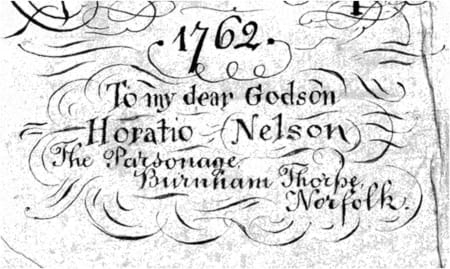 ·1762·
To my dear Godson
Horatio Nelson
The Parsonage,
Burnham Thorpe,
Norfolk.